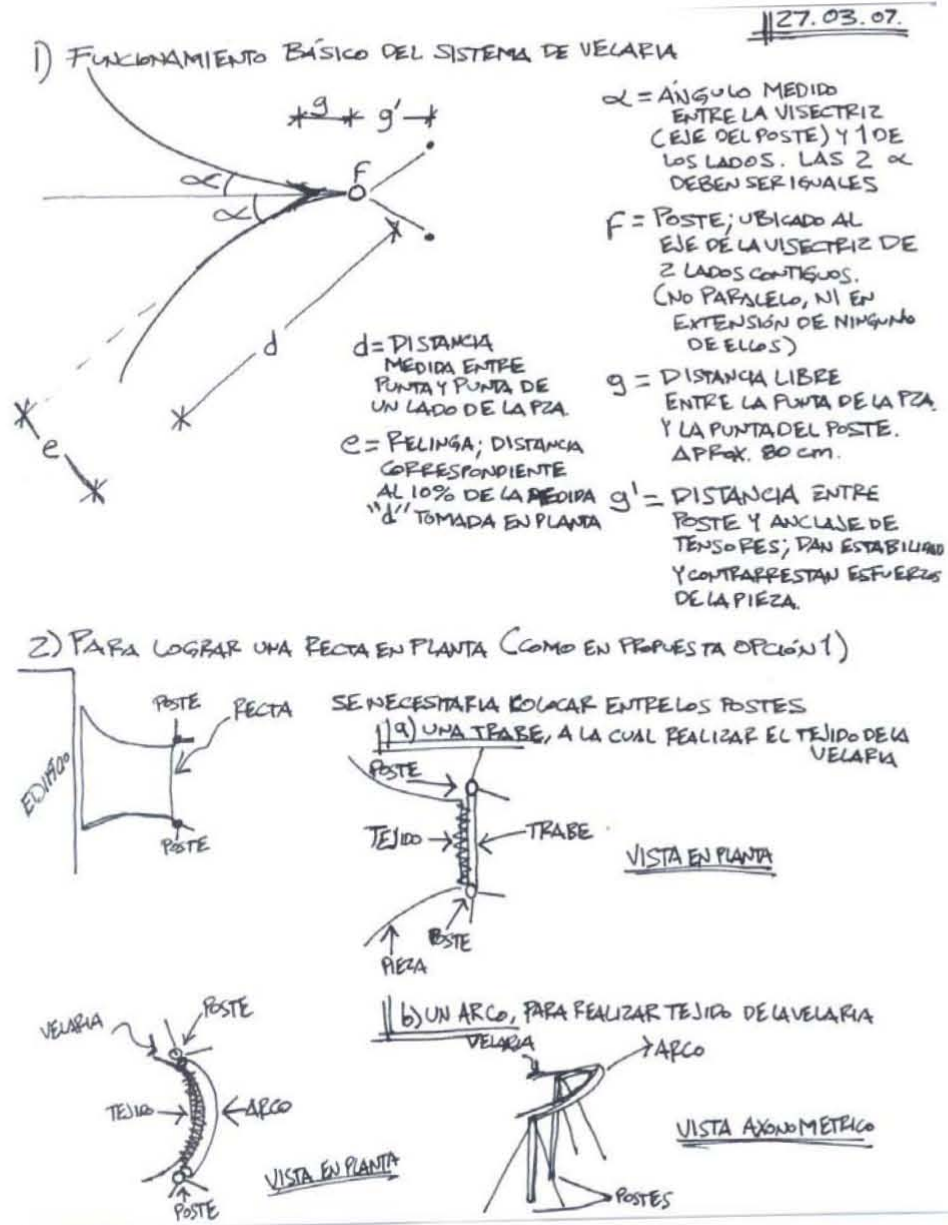 27.03.07.
1) FUNCIONAMIENTO BÁSICO DEL SISTEMA DE VELARIA
g g'
F
α
α
d
e
α = ÁNGULO MEDIDO
ENTRE LA VISECTRIZ
(EJE DEL POSTE) Y 1 DE
LOS LADOS. LAS 2 α
DEBEN SER IGUALES
F = POSTE; UBICADO AL
EJE DE LA VISECTRIZ DE
2 LADOS CONTIGUOS.
(NO PARALELO, NI EN
EXTENSIÓN DE NINGUNO
DE ELLOS)
d = DISTANCIA
MEDIDA ENTRE
PUNTA Y PUNTA DE
UN LADO DE LA PZA.
e = RELINGA; DISTANCIA
CORRESPONDIENTE
AL 10% DE LA MEDIDA
"d" TOMADA EN PLANTA
g = DISTANCIA LIBRE
ENTRE LA PUNTA DE LA PZA.
Y LA PUNTA DEL POSTE.
APROX. 80 cm.
g' = DISTANCIA ENTRE
POSTE Y ANCLAJE DE
TENSORES; DAN ESTABILIDAD
Y CONTRARRESTAN ESFUERZOS
DE LA PIEZA.
2) PARA LOGRAR UNA RECTA EN PLANTA (COMO EN PROPUESTA OPCIÓN 1)
EDIFICIO
POSTE
RECTA
POSTE
SE NECESITARIA COLOCAR ENTRE LOS POSTES
a) UNA TRABE, A LA CUAL REALIZAR EL TEJIDO DE LA
VELARIA
POSTE
TEJIDO
TRABE
POSTE
PIEZA
VISTA EN PLANTA
b) UN ARCO, PARA REALIZAR TEJIDO DE LA VELARIA
VELARIA
POSTE
TEJIDO
ARCO
POSTE
VISTA EN PLANTA
VELARIA
ARCO
POSTES
VISTA AXONOMETRICO